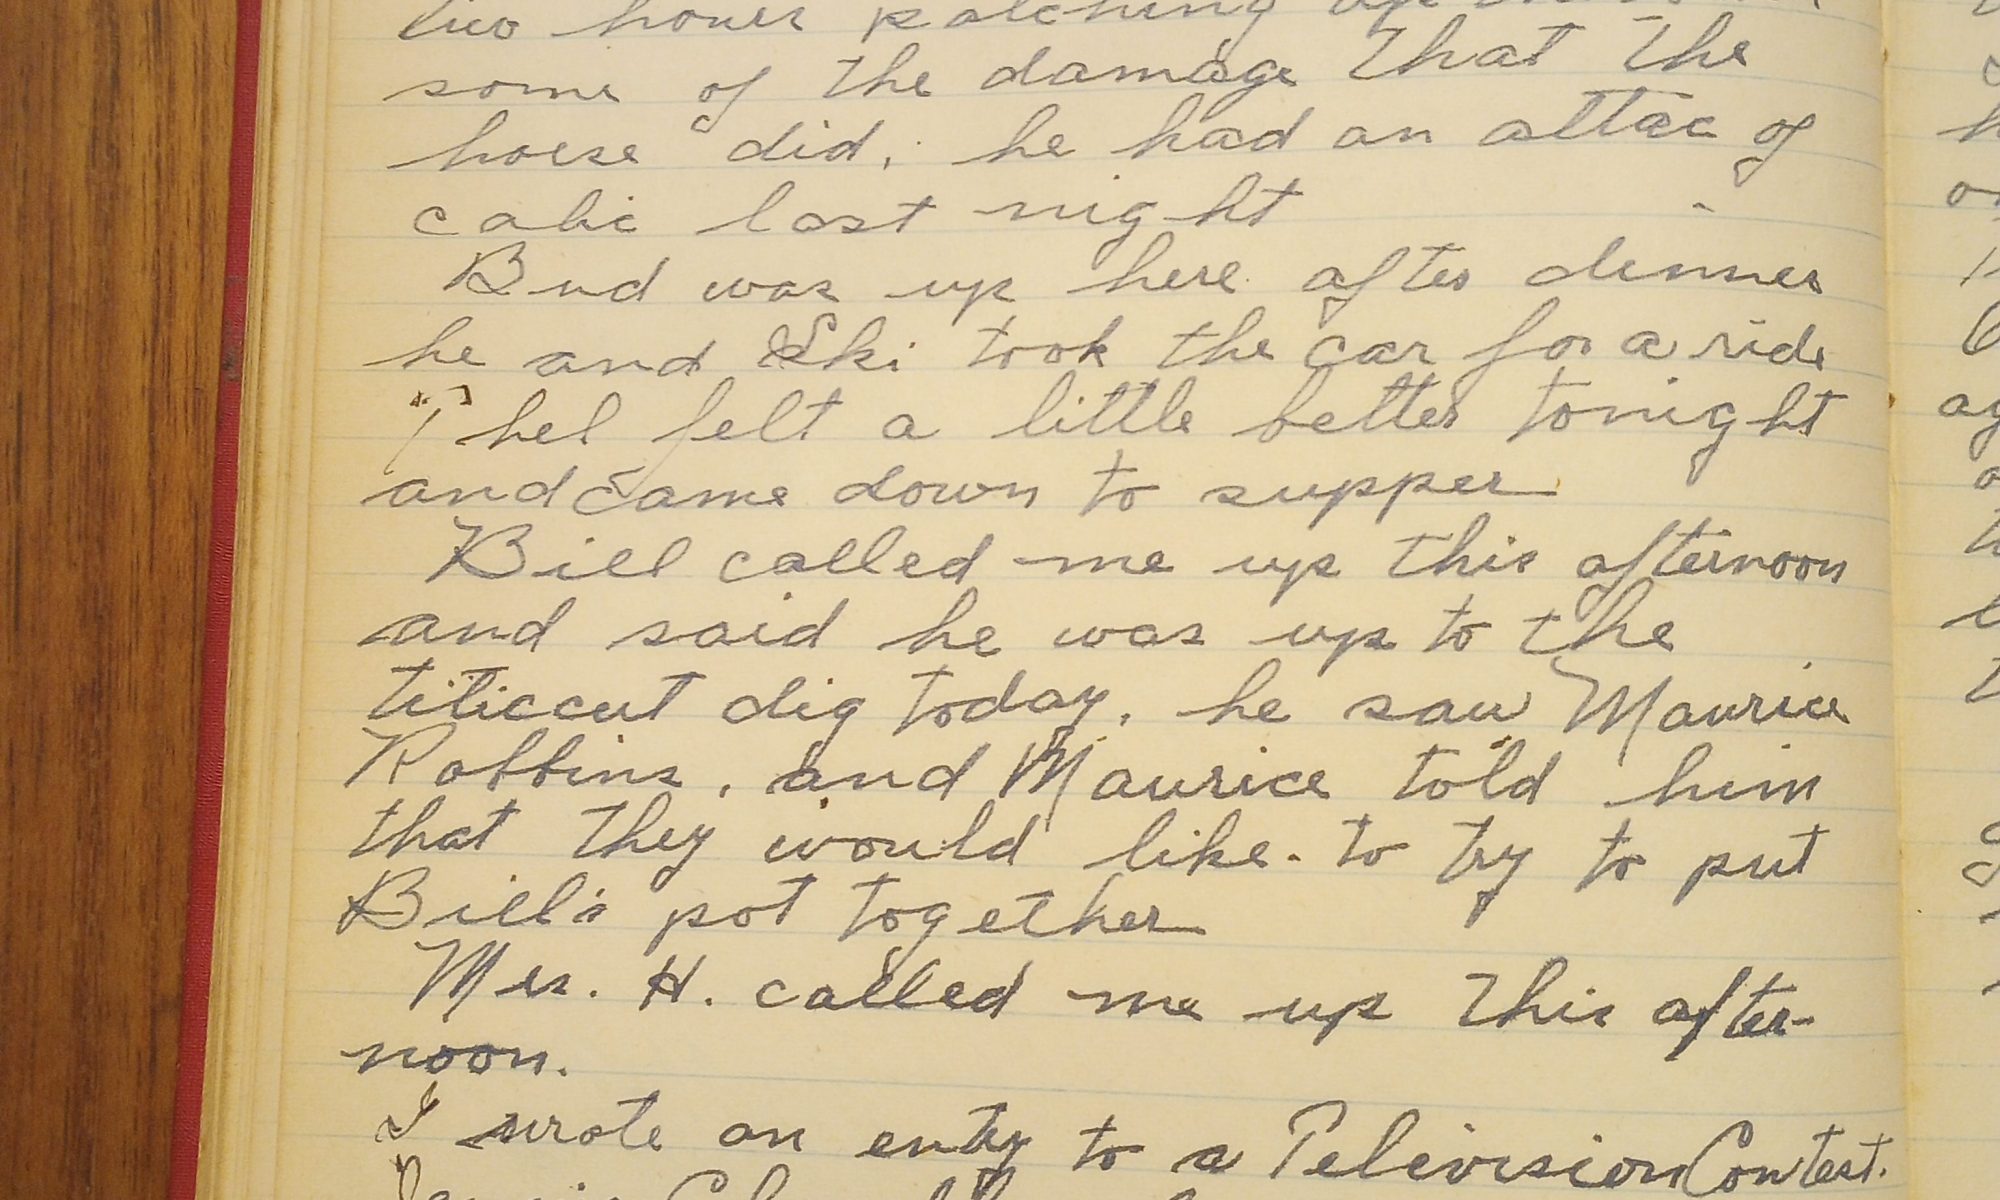 two hours patching up
some of the damage that the
horse did, he had an attac of
colic last night
Bud was up here after dinner
he and Ski took the car for a ride
Thel felt a little better tonight
and came down to supper
Bill called me up this afternoon
and said he was up to the
titiccut dig today, he saw Maurice
Robbins, and Maurice told him
that they would like to try to put
Bill's pot together
Mrs. H. called me up this after-
noon.
I wrote an entry to a Television Contest.